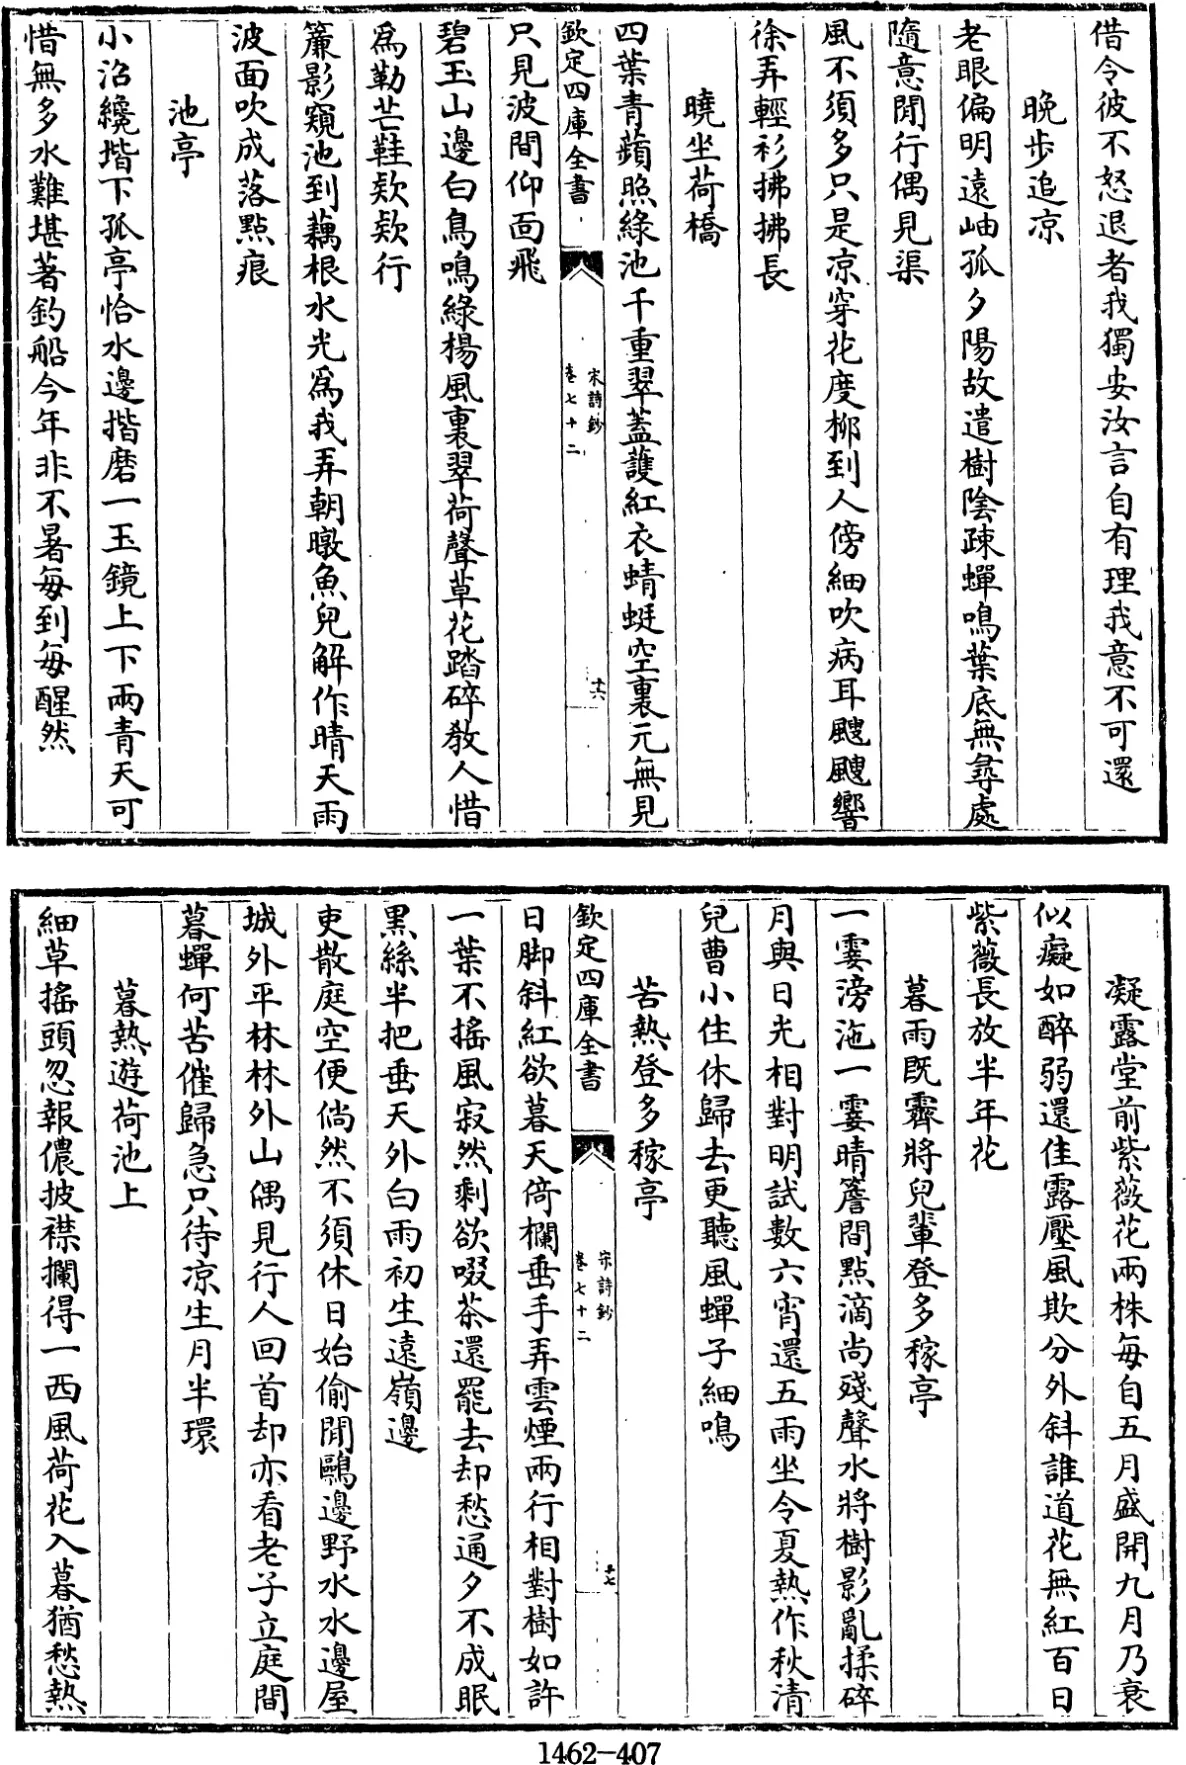 借令彼不怒退者我獨安汝言自有理我意不可還
晚步追凉
老眼偏明遠岫孤夕陽故遣樹陰疎蟬鳴葉底無尋處
隨意閒行偶見渠
風不須多只是凉穿花度栁到人傍細吹病耳颼颼響
徐弄輕衫拂拂長
曉坐荷橋
四葉青蘋照綠池千重翠蓋護紅衣蜻蜓空裏元無見
欽定四庫全書
宋詩鈔
卷七十二
十六
只見波間仰面飛
碧玉山邊白鳥鳴綠楊風裏翠荷聲草花踏碎教人惜
為勒芒鞋欵欵行
簾影窺池到藕根水光為我弄朝暾魚兒解作晴天雨
波面吹成落點痕
池亭
小沼繞堦下孤亭恰水邊揩磨一玉鏡上下兩青天可
惜無多水難堪著釣船今年非不暑每到每醒然
凝露堂前紫薇花兩株每自五月盛開九月乃衰
似癡如醉弱還佳露壓風欺分外斜誰道花無紅百日
紫薇長放半年花
暮雨既霽將兒輩登多稼亭
一霎滂沲一霎晴簷間點滴尚殘聲水將樹影亂揉碎
月與日光相對明試數六宵還五雨坐令夏熱作秋清
兒曹小住休歸去更聽風蟬子細鳴
苦熱登多稼亭
欽定四庫全書
宋詩鈔
卷七十二
十七
日脚斜紅欲暮天倚欄垂手弄雲煙兩行相對樹如許
一葉不搖風寂然剩欲啜茶還罷去却愁通夕不成眠
黒絲半把垂天外白雨初生遠嶺邊
吏散庭空便倘然不須休日始偷閒鷗邊野水水邊屋
城外平林林外山偶見行人回首却亦看老子立庭間
暮蟬何苦催歸急只待凉生月半環
暮熱遊荷池上
細草搖頭忽報儂披襟攔得一西風荷花入暮猶愁熱
1462-407